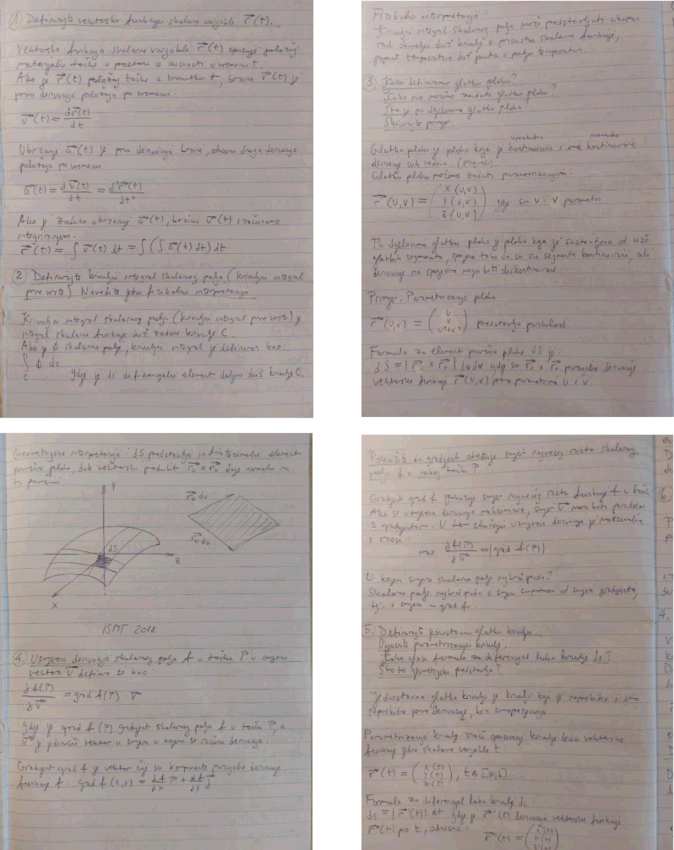 1 Definirajte vektorsku funkciju skalarne varijable r(t).
Vektorska funkcija skalarne varijable r(t) opisuje položaj
materijalne točke u prostoru u ovisnosti o vremenu t.
Ako je r(t) položaj točke u trenutku t, brzina r(t) je
prva derivacija položaja po vremenu:
v(t) = dr(t)/dt
Ubrzanje a(t) je prva derivacija brzine, odnosno druga derivacija
položaja po vremenu:
a(t) = dv(t)/dt = d²r(t)/dt²
Ako je zadano ubrzanje a(t), brzinu v(t) računamo
integriranjem:
r(t) = ∫ v(t) dt = ∫(∫ a(t) dt) dt
2 Definirajte krivuljni integral skalarnog polja (krivuljni integral
prve vrste). Navedite fizikalne interpretacije
Krivuljni integral skalarnog polja (krivuljni integral prve vrste) je
integral skalarne funkcije duž zadane krivulje C.
Ako je skalarno polje, krivuljni integral je definiran kao:
∫ ϕ ds
gdje je ds diferencijalni element duljine duž krivulje C.
Fizikalna interpretacija:
Krivuljni integral skalarnog polja može predstavljati
rad duž krivulje u prisustvu skalarne funkcije,
poput temperature duž puta u polju temperature.
3 Kako definiramo glatku plohu?
Kako možemo zadati glatku plohu?
Što je po dijelovima glatka ploha?
Skicirajte primjer.
Glatka ploha je ploha koja je kontinuirana i ima kontinuirane
derivacije
Glatku plohu možemo zadati parametrizacijom:
r(u,v) = ( x(u,v) y(u,v) z(u,v) ) gdje su u i v parametri
Po dijelovima glatka ploha je ploha koja je sastavljena od više
glatkih segmenata, spojena tako da su segmenti kontinuirani, ali
derivacije na spojevima mogu biti diskontinuirane
Primjer: Parametrizacija plohe
r(u,v) = predstavlja paraboloid.
Formula za element površine plohe dS je:
dS = |ru × rv| du dv gdje su ru i rv parcijalne derivacije
vektorske funkcije r(u,v) prema parametrima u i v.
Geometrijska interpretacija: dS predstavlja infinitezimalni element
površine plohe, dok vektorski produkt ru × rv daje normalu na
tu površinu
Y
dS
Z
X
rv dv
ru du
4. Usmjerena derivacija skalarnog polja f u točki P u smjeru
vektora v definira se kao:
df(P)/dv = grad f(P) · v
Gdje je grad f(P) gradijent skalarnog polja f u točki P, a
v je jedinični vektor u smjeru u kojem se računa derivacija.
Gradijent grad f je vektor čije su komponente parcijalne derivacije
funkcije f:
Dokažite da gradijent određuje smjer najvećeg rasta skalarnog
polja f u nekoj točki P.
Gradijent grad f pokazuje smjer najvećeg rasta funkcije f u točki
Ako je usmjerena derivacija maksimalna, smjer v mora biti paralelan
s gradijentom. U tom slučaju usmjerena derivacija je maksimalna
i iznosi:
max df(P)/dv = |grad f(P)|
U kojem smjeru skalarno polje najbrže pada?
Skalarno polje najbrže pada u smjeru suprotnom od smjera gradijenta
tj. u smjeru - grad f
5. Definirajte jednostavnu glatku krivulju.
parametrizaciju krivulje.
Kako glasi formula za diferencijal luka krivulje ds?
Što to geometrijski predstavlja?
Jednostavna glatka krivulja je krivulja koja je neprekidna i ima
neprekidne prve derivacije, bez samopresijecanja
Parametrizacija krivulje znači opisivanje krivulje kao vektorske
funkcije skalarne varijable t:
r(t) = ( x(t) y(t) z(t) ), t ∈ [a,b]
Formula za diferencijal luka krivulje ds:
ds = |r'(t)| dt gdje je r'(t) derivacija vektorske funkcije
r(t) po t, odnosno: r'(t) = ( x'(t)